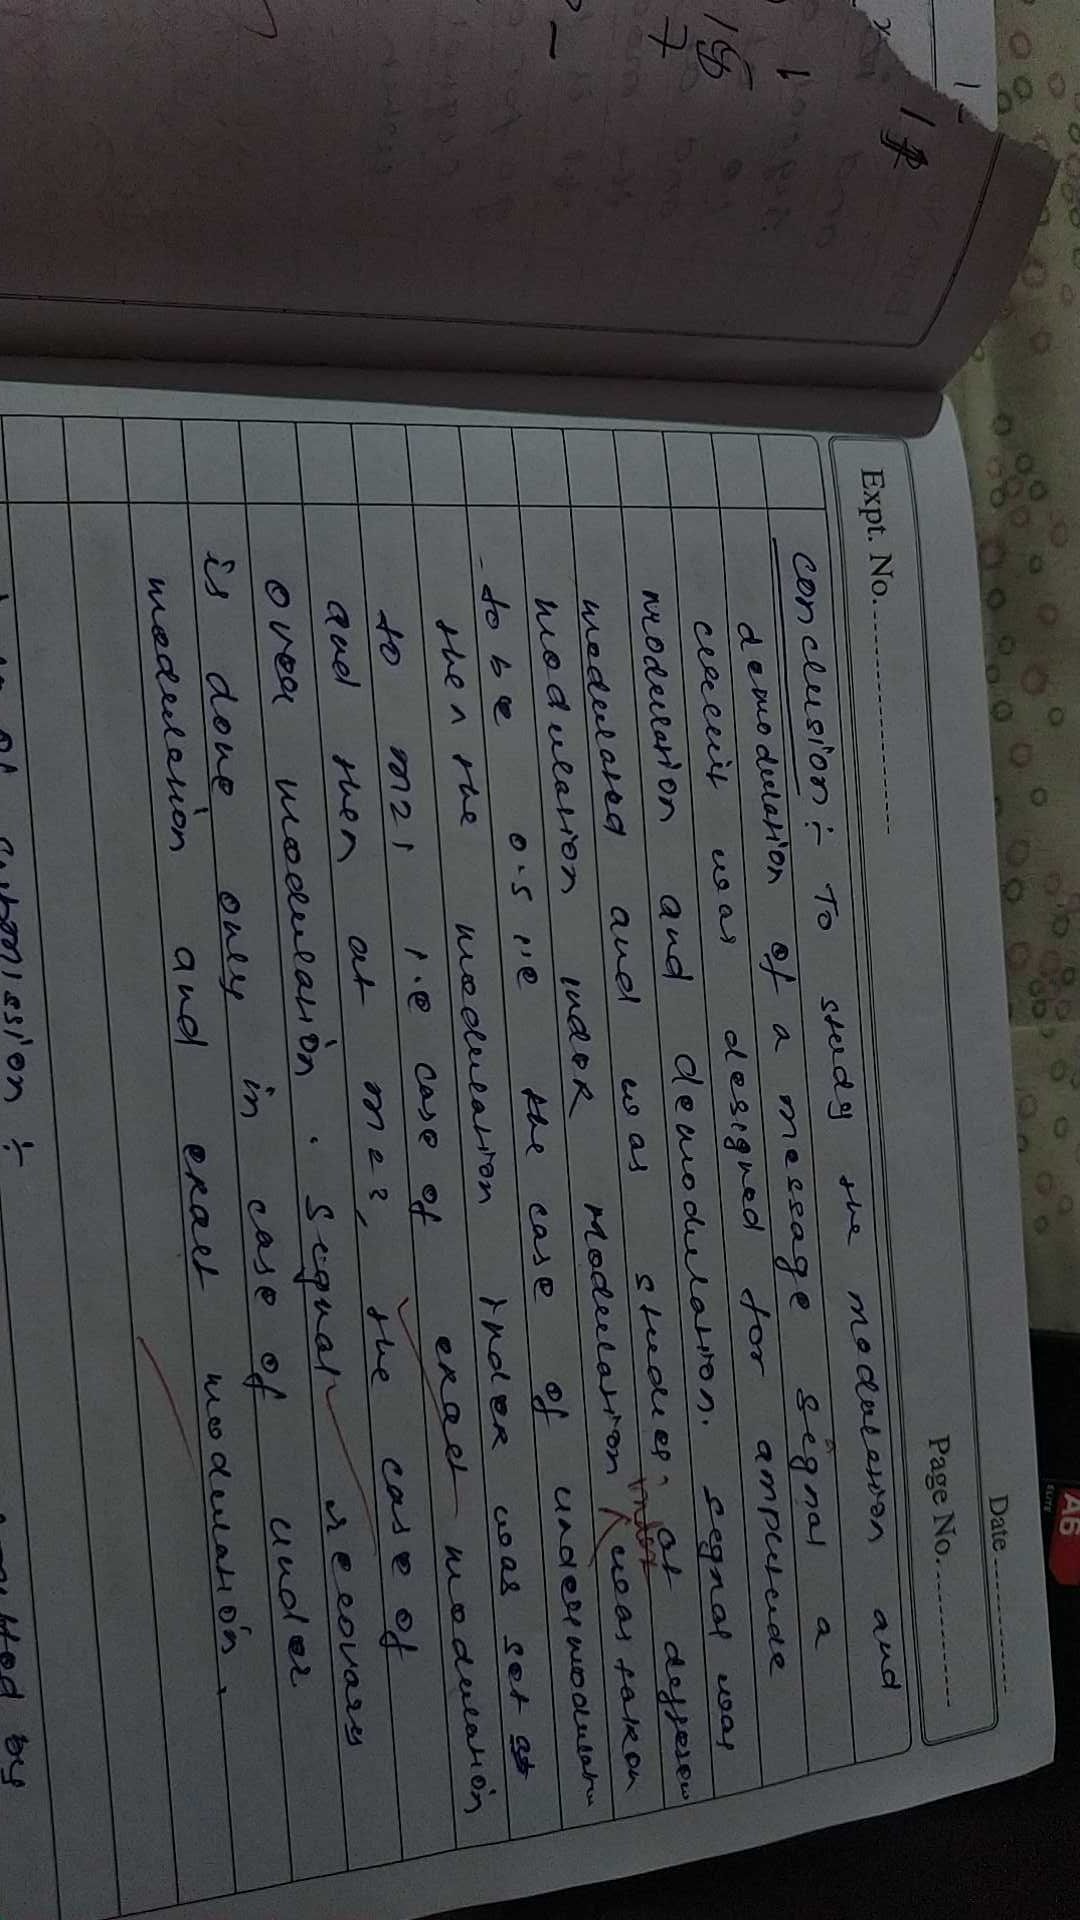 Date
Page No.
Expt. No.
Conclusion :- To study the modulation and
demodulation of a message signal a
circuit was designed for amplitude
modulation and demodulation. Signal was
modulated and was studied at different
modulation index Modulation index was taken
to be 0.5 i.e the case of undermodulation
then the modulation index was set
to m=1 i.e case of exact modulation
and then at m=2, the case of
over modulation. Signal recovary
is done only in case of under
modulation and exact modulation.